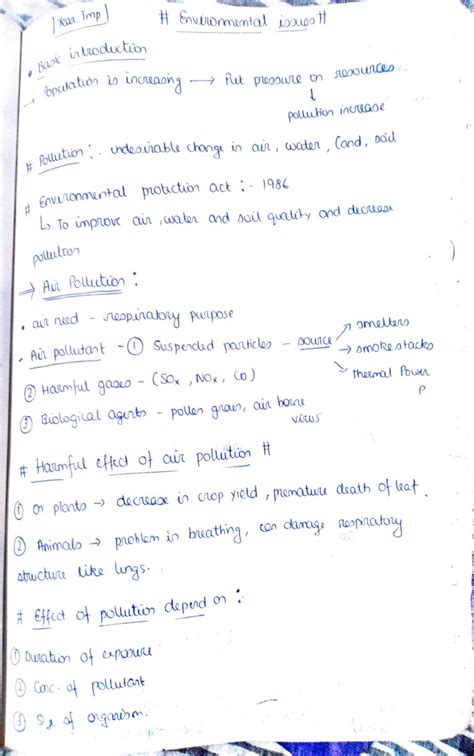 Year Imp
# Environmental issues #
• Basic introduction
→ Population is increasing → Put pressure on resources..
↓
pollution increase
# Pollution :- undesirable change in air, water, land, soil
# Environmental protection act :- 1986
↳ To improve air, water and soil quality and decrease
pollution
→ Air Pollution :
• air need - respiratory purpose
• Air pollutant - ① Suspended particles - source → smelters
→ smoke stacks
→ thermal Power
P
② Harmful gases - (SOx, NOx, CO)
③ Biological agents - pollen grains, air borne
virus
# Harmful effect of air pollution #
① On plants → decrease in crop yield, premature death of leaf.
② Animals → problem in breathing, can damage respiratory
structure like lungs.
# Effect of pollution depend on :
① Duration of exposure
② Conc. of pollutant
③ of organism.